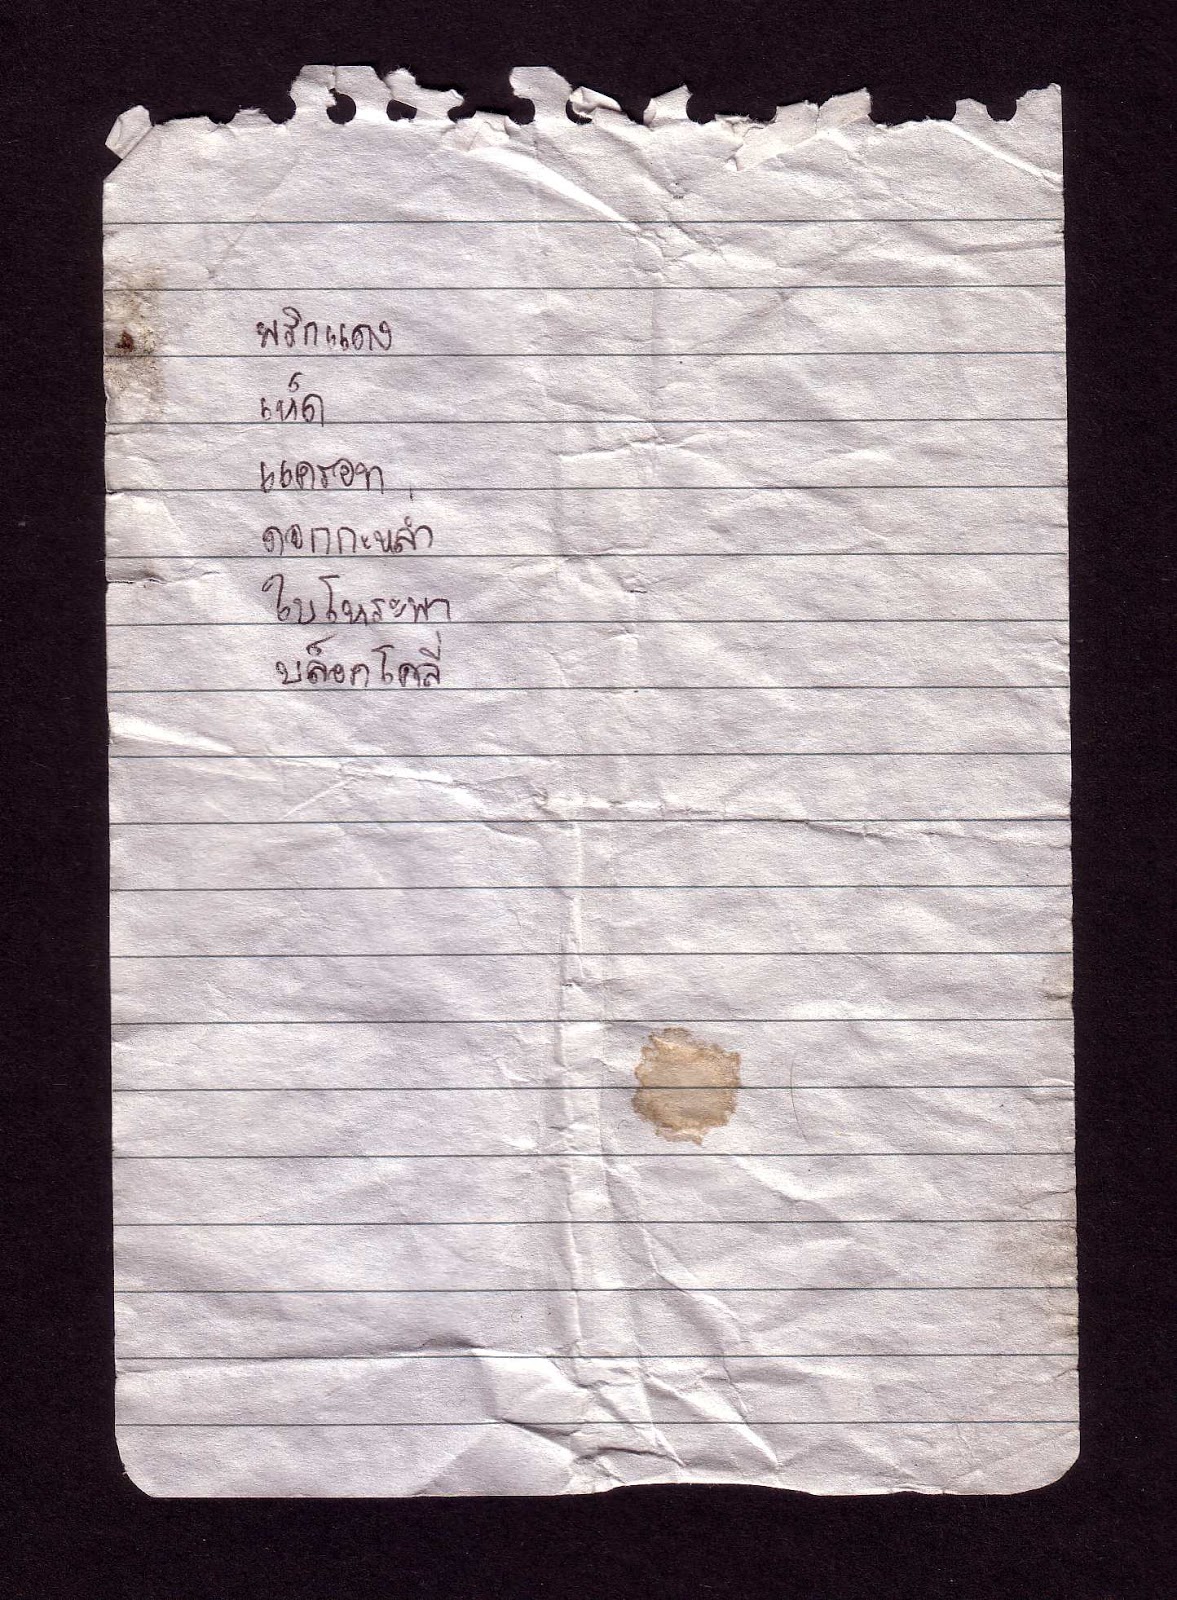 พริกแดง
เห็ด
แครอท
ดอกกะหล่ำ
ใบโหระพา
บล็อคโคลี่